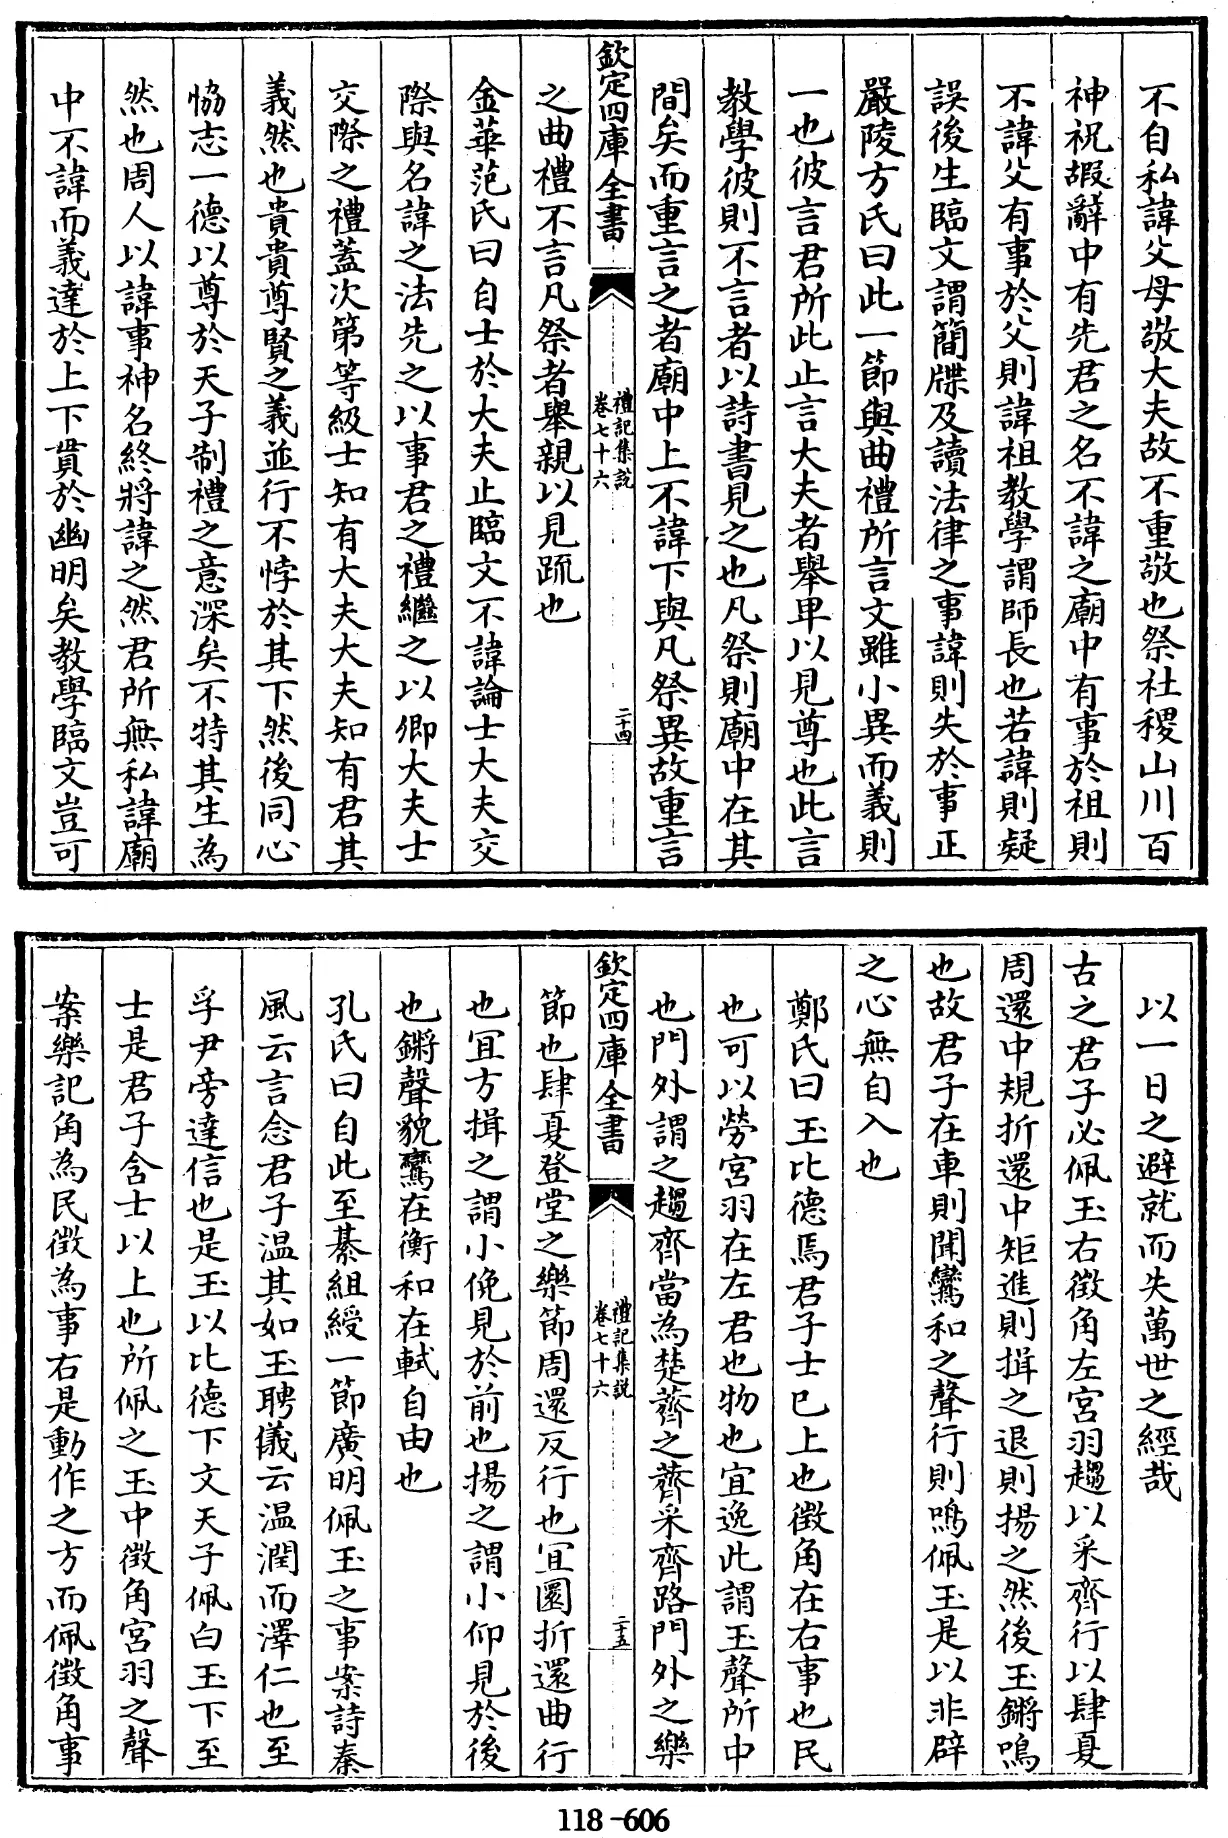 不自私諱父母敬大夫故不重敬也祭社稷山川百
神祝嘏辭中有先君之名不諱之廟中有事於祖則
不諱父有事於父則諱祖教學謂師長也若諱則疑
誤後生臨文謂簡牒及讀法律之事諱則失於事正
嚴陵方氏曰此一節與曲禮所言文雖小異而義則
一也彼言君所此止言大夫者舉卑以見尊也此言
教學彼則不言者以詩書見之也凡祭則廟中在其
間矣而重言之者廟中上不諱下與凡祭異故重言
欽定四庫全書
禮記集說
卷七十六
二十四
之曲禮不言凡祭者舉親以見疏也
金華范氏曰自士於大夫止臨文不諱論士大夫交
際與名諱之法先之以事君之禮繼之以卿大夫士
交際之禮蓋次第等級士知有大夫大夫知有君其
義然也貴貴尊賢之義並行不悖於其下然後同心
恊志一德以尊於天子制禮之意深矣不特其生為
然也周人以諱事神名終將諱之然君所無私諱廟
中不諱而義達於上下貫於幽明矣教學臨文豈可
以一日之避就而失萬世之經哉
古之君子必佩玉右徵角左宮羽趨以采齊行以肆夏
周還中規折還中矩進則揖之退則揚之然後玉鏘鳴
也故君子在車則聞鸞和之聲行則鳴佩玉是以非辟
之心無自入也
鄭氏曰玉比德焉君子士已上也徵角在右事也民
也可以勞宮羽在左君也物也宜逸此謂玉聲所中
也門外謂之趨齊當為楚薺之薺采齊路門外之樂
欽定四庫全書
禮記集説
卷七十六
二十五
節也肆夏登堂之樂節周還反行也宜圜折還曲行
也宜方揖之謂小俛見於前也揚之謂小仰見於後
也鏘聲貌鸞在衡和在軾自由也
孔氏曰自此至綦組綬一節廣明佩玉之事案詩秦
風云言念君子溫其如玉聘儀云温潤而澤仁也至
孚尹旁達信也是玉以比德下文天子佩白玉下至
士是君子含士以上也所佩之玉中徵角宮羽之聲
案樂記角為民徵為事右是動作之方而佩徵角事
118-606